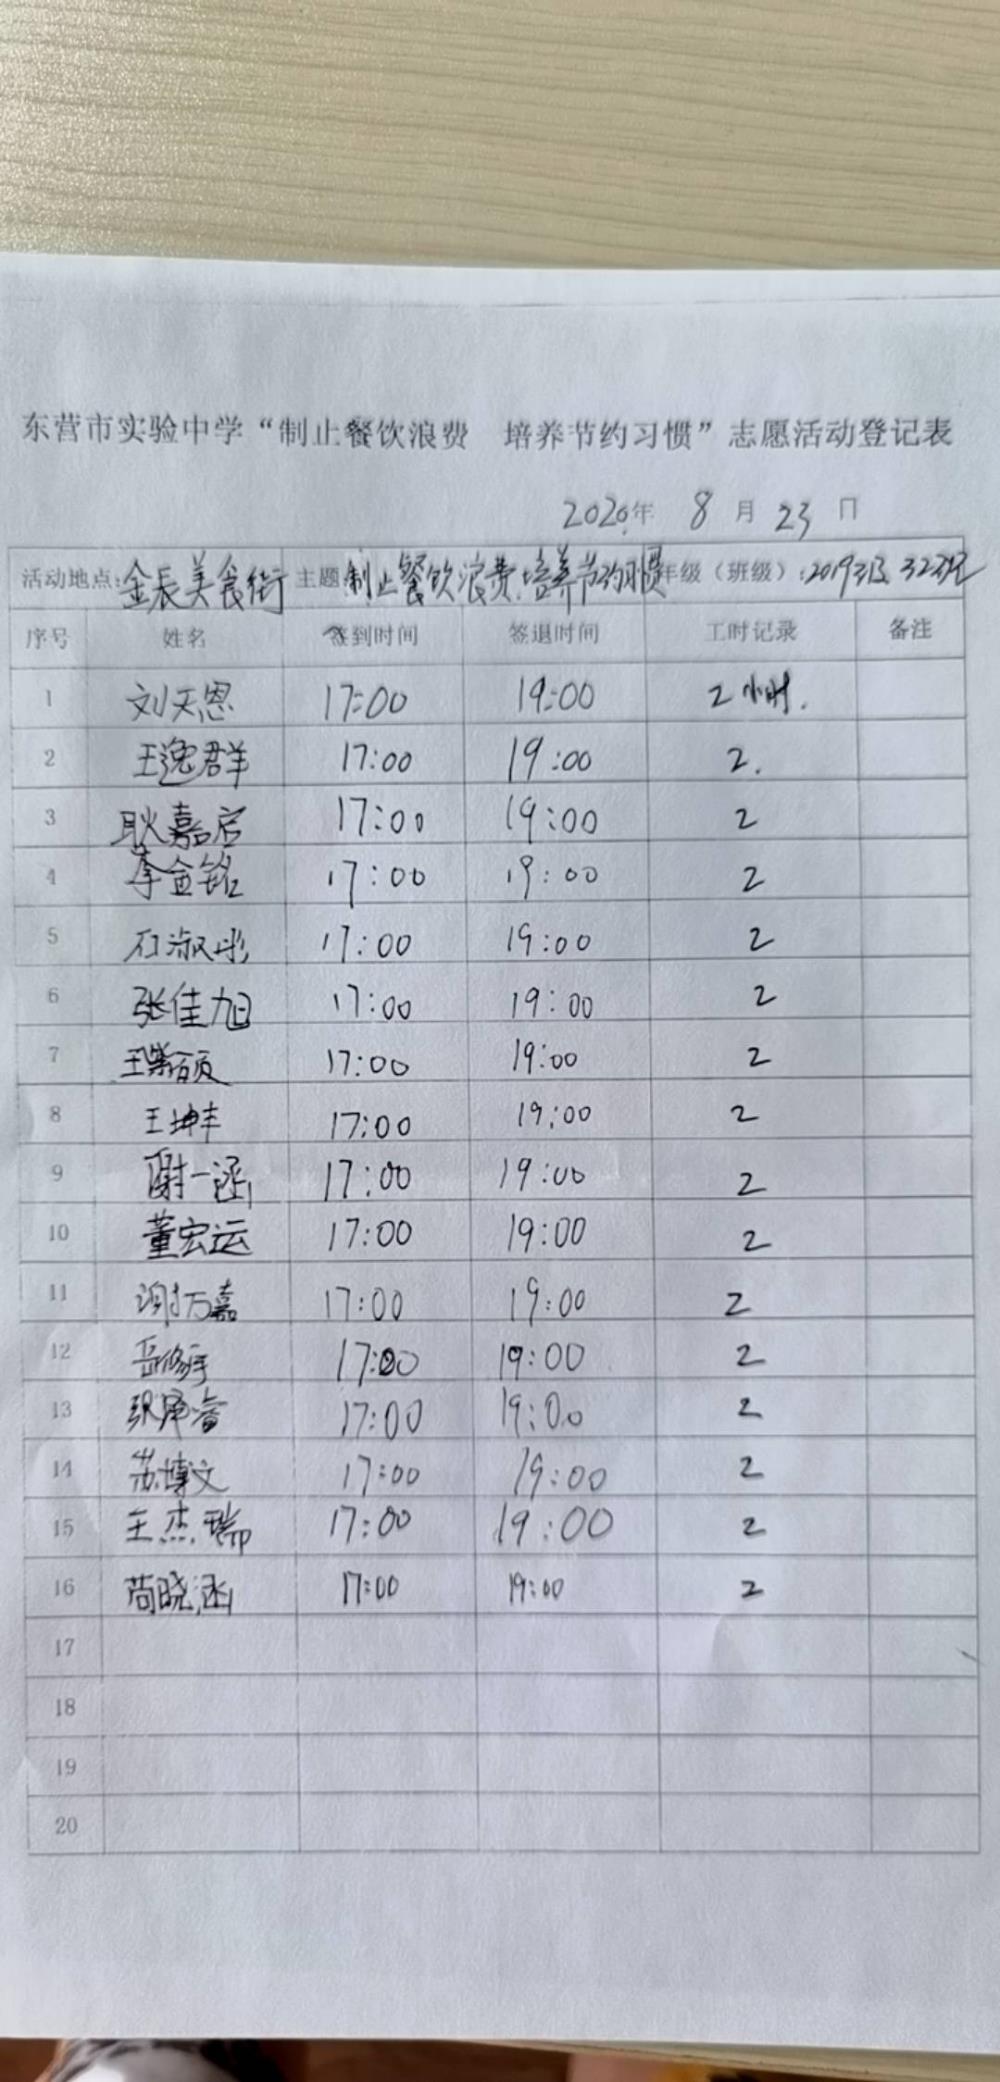 东营市实验中学“制止餐饮浪费 培养节约习惯”志愿活动登记表
2020年 8月23日
活动地点:金辰美食街 主题:制止餐饮浪费.培养节约习惯 年级(班级):2019级322班
序号 姓名 签到时间 签退时间 工时记录 备注
1 刘天恩 17:00 19:00 2小时.
2 王逸群 17:00 19:00 2.
3 耿嘉启 17:00 19:00 2
4 李金铭 17:00 19:00 2
5 石淑彤 17:00 19:00 2
6 张佳旭 17:00 19:00 2
7 17:00 19:00 2
8 王坤丰 17:00 19:00 2
9 谢一涵 17:00 19:00 2
10 董宏运 17:00 19:00 2
11 谢万嘉 17:00 19:00 2
12 17:00 19:00 2
13 17:00 19:00 2
14 苏博文 17:00 19:00 2
15 王杰瑞 17:00 19:00 2
16 苘晓涵 17:00 19:00 2
17
18
19
20